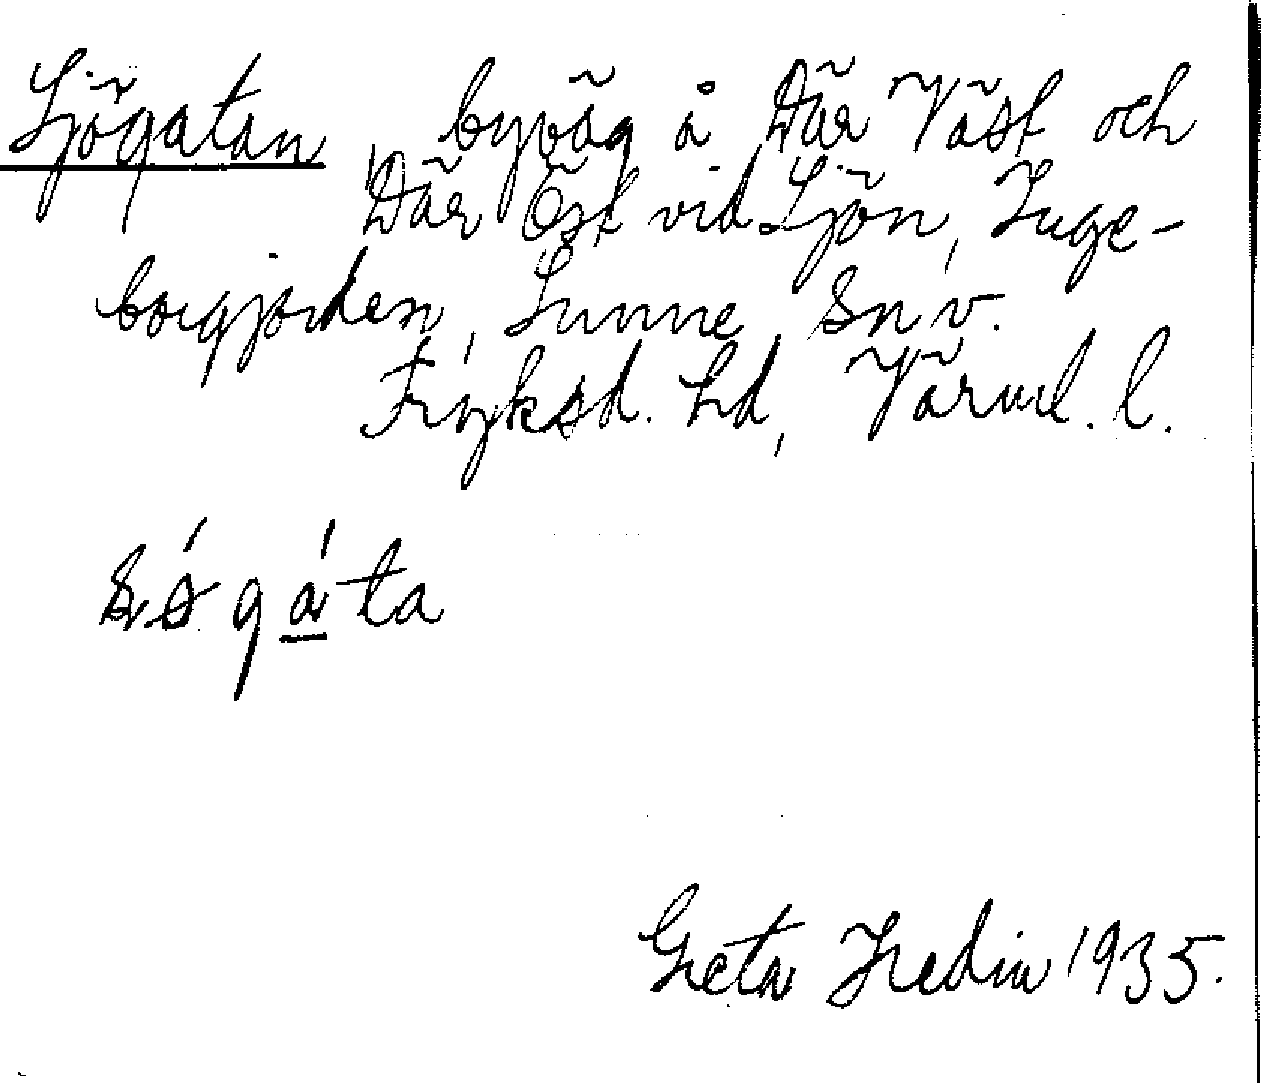 Sjögatan, byväg å Där Väst och
Där Öst vid Sjön, Inge-
borgjorden, Sunne, Sn v.
Fryksd. hd, Värml. l.
gáta
Greta Hedin 1935.